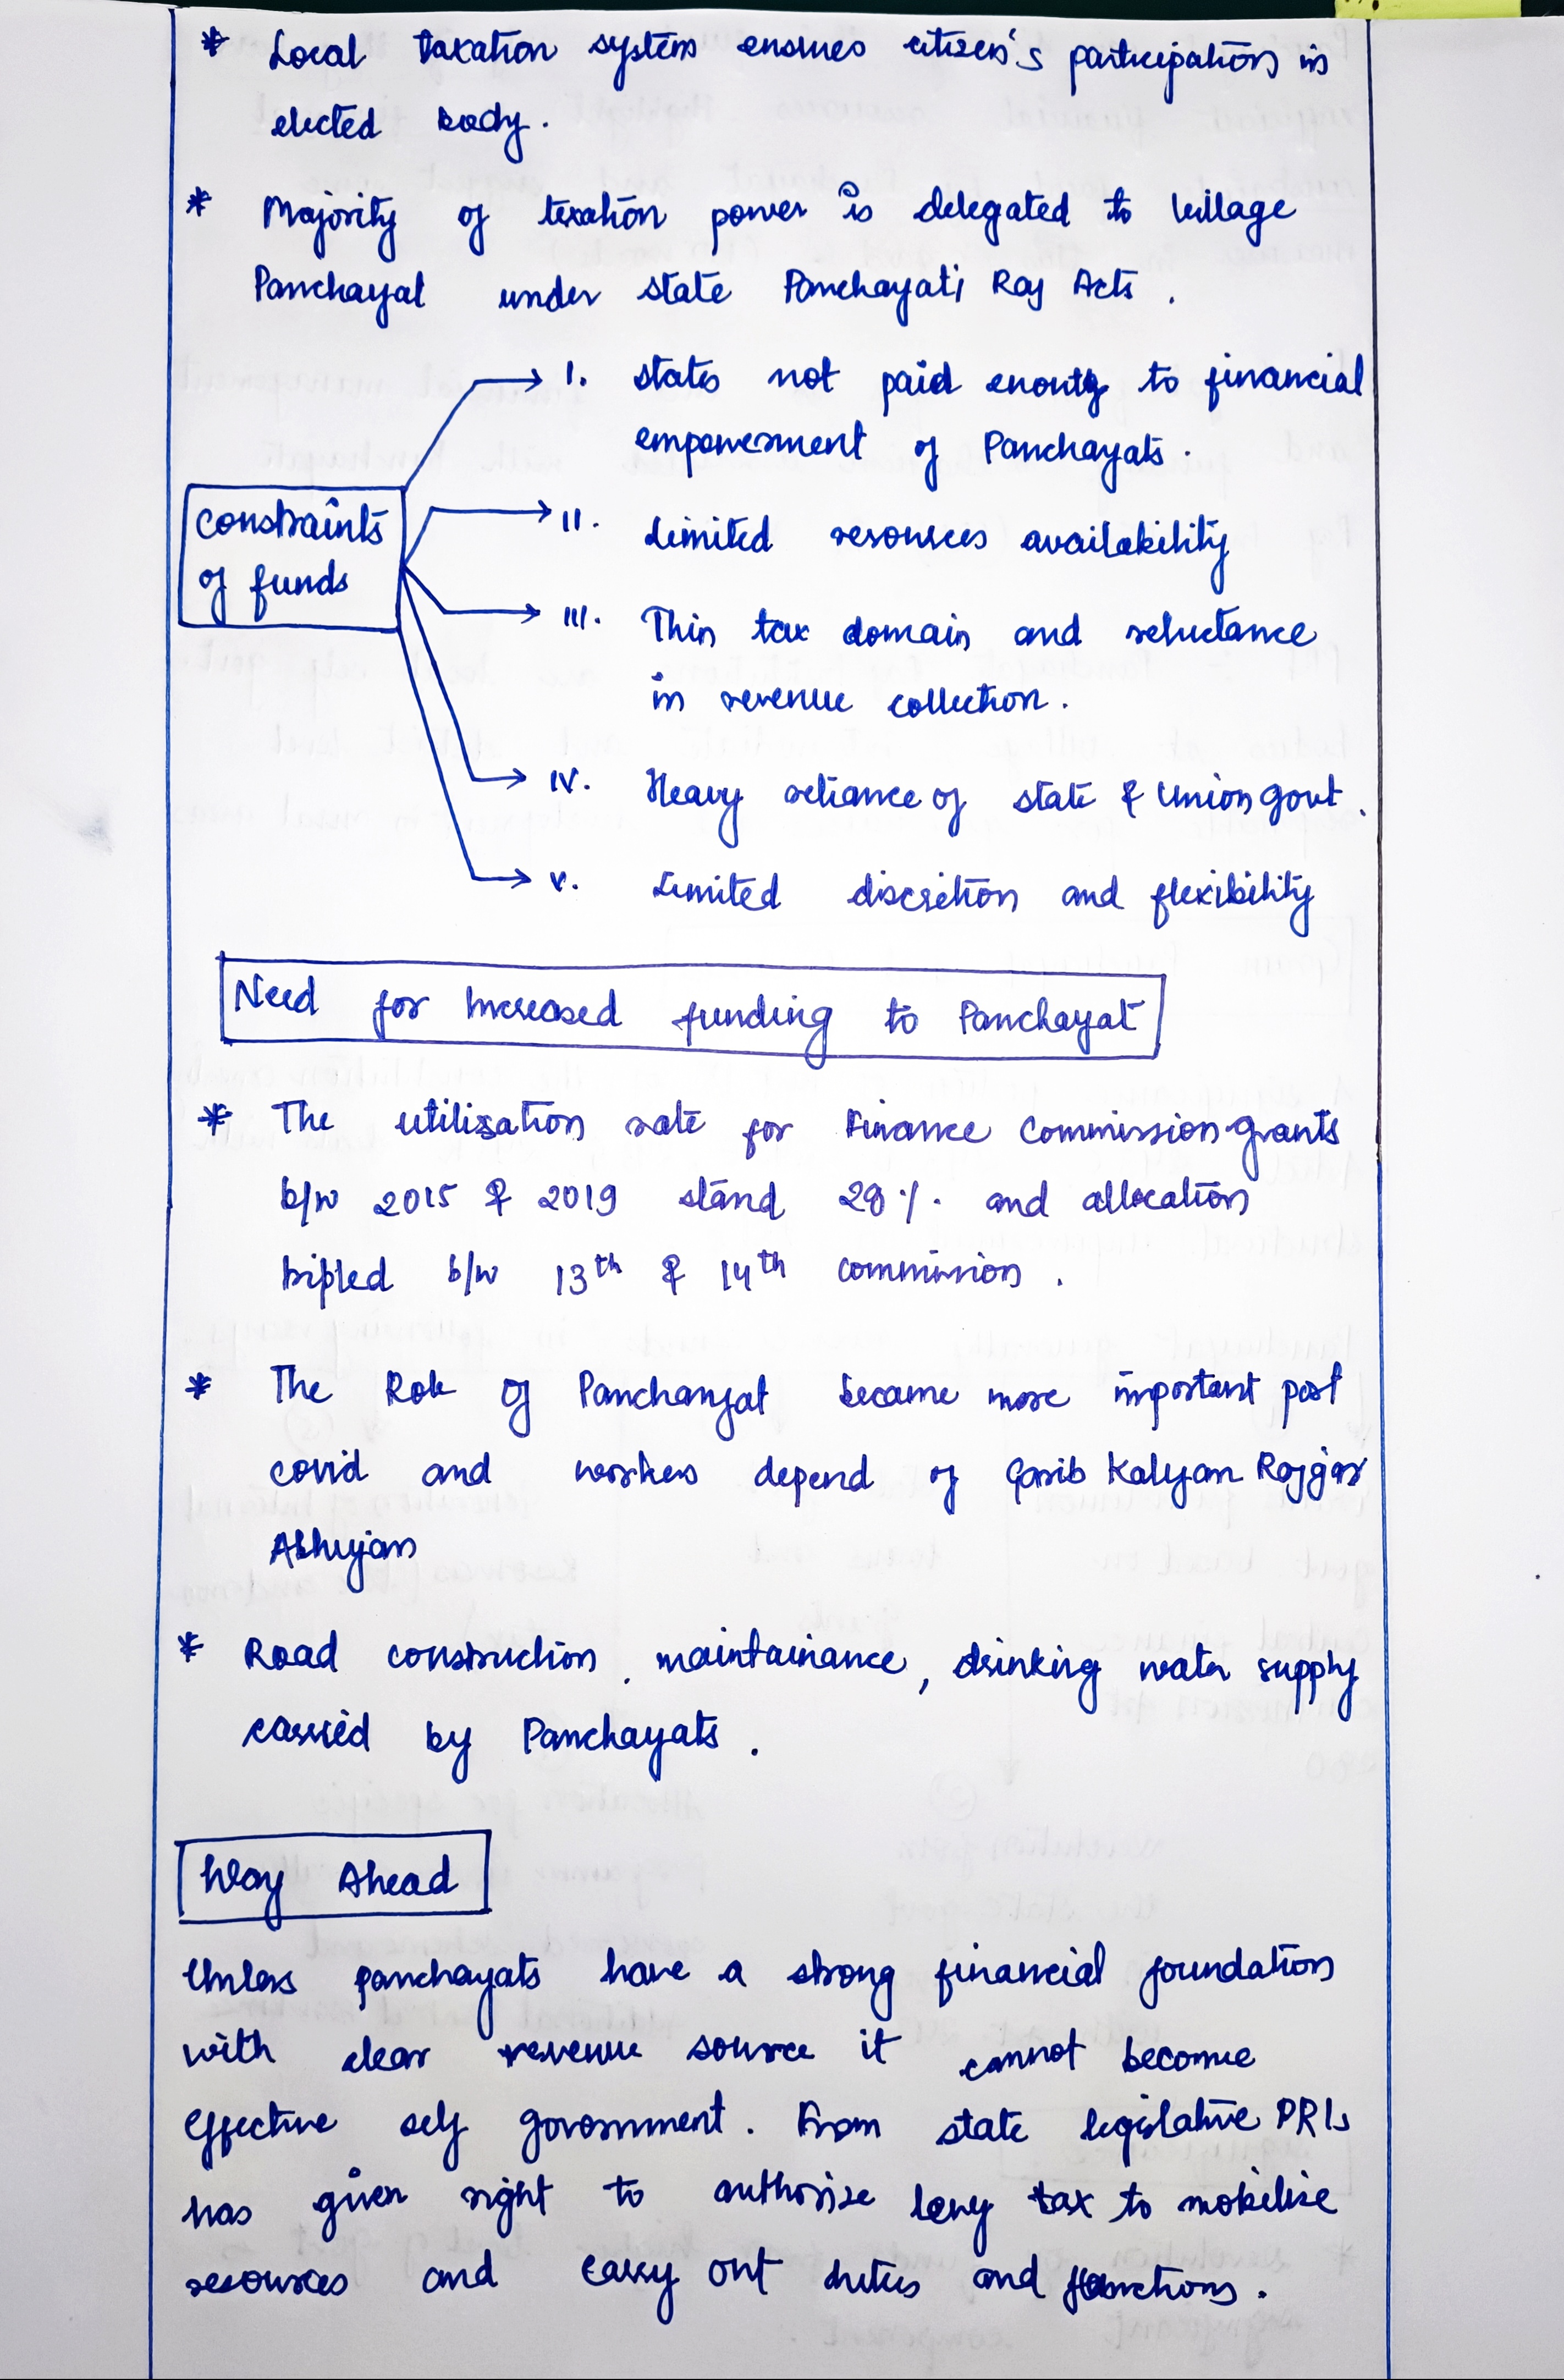 * Local taxation system ensures citizen's participation in
elected body.
* Majority of taxation power is delegated to village
Panchayat under state Panchayati Raj Acts.
I. states not paid enough to financial
empowerment of Panchayats.
constraints
of funds
II. Limited resources availability
III. Thin tax domain and reluctance
in revenue collection.
IV. Heavy reliance of state & Union govt.
V. Limited discretion and flexibility
Need for Increased funding to Panchayat
* The utilisation rate for Finance Commission grants
b/w 2015 & 2019 stand 28%. and allocation
tripled b/w 13th & 14th commission.
* The Role of Panchanyat became more important post
covid and workers depend of Garib Kalyan Rojgar
Abhiyan
* Road construction, maintainance, drinking water supply
carried by Panchayats.
Way Ahead
Unless panchayats have a strong financial foundation
with clear revenue source it cannot become
effective self government. From state legislative PRIs
has given right to authorise levy tax to mobilise
resources and carry out duties and functions.